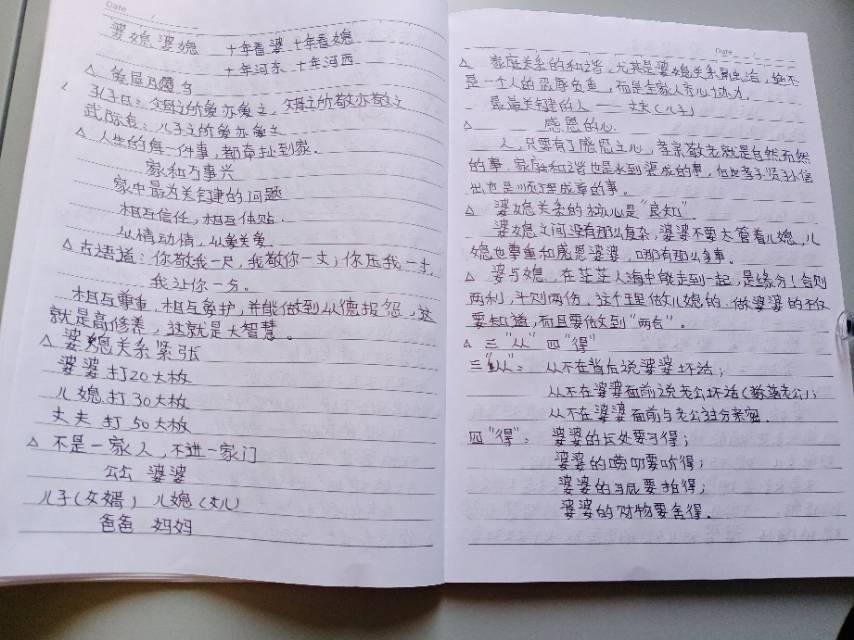 Date
婆媳婆媳 十年看婆 十年看媳
十年河东 十年河西
△ 爱屋及乌
孔子曰：父母之所爱亦爱之，父母之所敬亦敬之
武际有：儿子之所爱亦爱之
△ 人生的每一件事，都牵扯到家。
家和万事兴
家中最为关键的问题
相互信任，相互体贴．
以情动情，以爱关爱
△ 古语道：你敬我一尺，我敬你一丈；你压我一寸，
我让你一分。
相互尊重，相互爱护，并能做到以德报怨，这
就是高修养，这就是大智慧。
△ 婆媳关系紧张
婆婆打20大板
儿媳打30大板
丈夫 打 50大板
△ 不是一家人，不进一家门
公公 婆婆
儿子（女婿） 儿媳（女儿）
爸爸 妈妈
Date
△ 家庭关系的和谐，尤其是婆媳关系融洽，绝不
是一个人的忍辱负重，而是全家人齐心协力．
最为关键的人 —— 丈夫（儿子）
△ 感恩的心
人，只要有了感恩之心，孝亲敬老就是自然而然
的事．家庭和谐也是水到渠成的事，但出孝子贤孙信
出也是顺理成章的事。
△ 婆媳关系的核心是“良知”．
婆媳之间没有那么复杂，婆婆不要太管着儿媳，儿
媳也尊重和感恩婆婆，哪有那么多事。
△ 婆与媳，在茫茫人海中能走到一起，是缘分！合则
两利，斗则两伤，这个理做儿媳的．做婆婆的不仅
要知道，而且要做到“两合”。
△ 三“从”四“得”
三“从”： 从不在背后说婆婆坏话；
从不在婆婆面前说老公坏话（数落老公）；
从不在婆婆面前与老公过分亲密．
四“得”： 婆婆的长处要习得；
婆婆的唠叨要听得；
婆婆的马屁要拍得；
婆婆的财物要舍得．